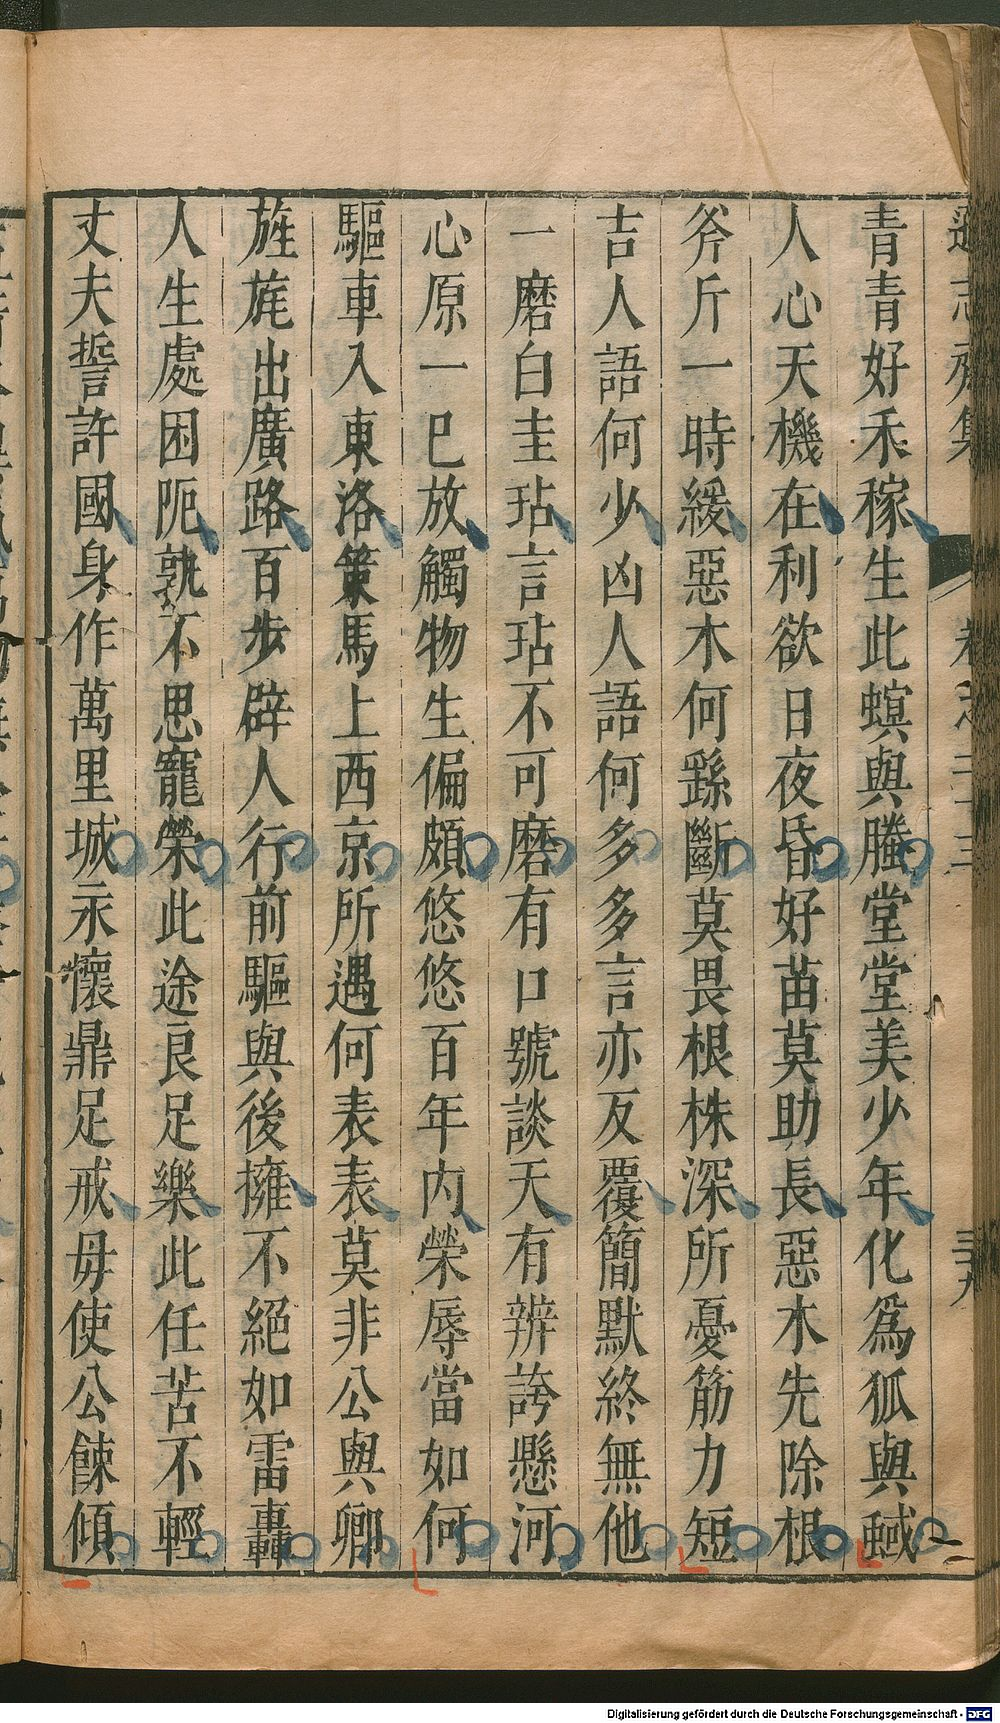 青青好禾稼生此螟與螣堂堂美少年化爲狐與蜮
人心天機在利欲日夜昏好苗莫助長惡木先除根
斧斤一時緩惡木何繇斷莫畏根株深所憂筋力短
吉人語何少凶人語何多多言亦反覆簡默終無他
一磨白圭玷言玷不可磨有口號談天有辨誇懸河
心原一巳放觸物生偏頗悠悠百年内榮辱當如何
驅車入東洛策馬上西京所遇何表表莫非公與卿
旌旄出廣路百步辟人行前驅與後擁不絕如雷轟
人生處困阨孰不思寵榮此途良足樂此任苦不輕
丈夫誓許國身作萬里城永懷鼎足戒毋使公餗傾
遜志齋集
卷之二十三
三十九
Digitalisierung gefördert durch die Deutsche Forschungsgemeinschaft - DFG